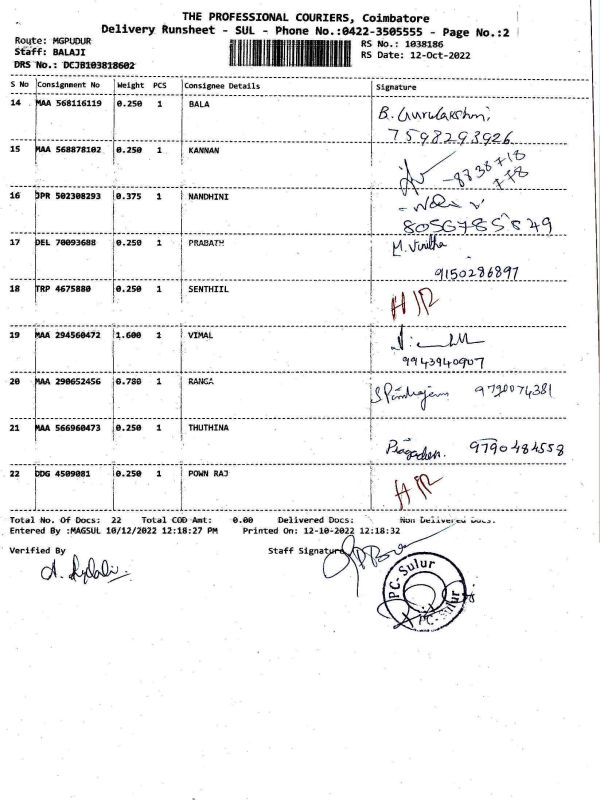 THE PROFESSIONAL COURIERS, Coimbatore
Delivery Runsheet - SUL - Phone No.:0422-3505555 - Page No.:2
Route: MGPUDUR
RS No.: 1038186
Staff: BALAJI
RS Date: 12-Oct-2022
DRS No.: DCJB103818602
S No Consignment No Weight PCS Consignee Details Signature
14 MAA 568116119 0.250 1 BALA B. Gurulakshmi
7598293926
15 MAA 568878102 0.250 1 KANNAN -8838718
778
16 JPR 502308293 0.375 1 NANDHINI
8056785849
17 DEL 70093688 0.250 1 PRABATH M. Vinitha
9150286897
18 TRP 4675880 0.250 1 SENTHIIL H/R
19 MAA 294560472 1.600 1 VIMAL
9943940907
20 MAA 290652456 0.780 1 RANGA 9790074381
21 MAA 566960473 0.250 1 THUTHINA 9790484558
22 DDG 4509081 0.250 1 POWN RAJ H/R
Total No. Of Docs: 22 Total COD Amt: 0.00 Delivered Docs: Non Delivered Docs:
Entered By :MAGSUL 10/12/2022 12:18:27 PM Printed On: 12-10-2022 12:18:32
Verified By Staff Signature
PC-Sulur
PC-Sulur